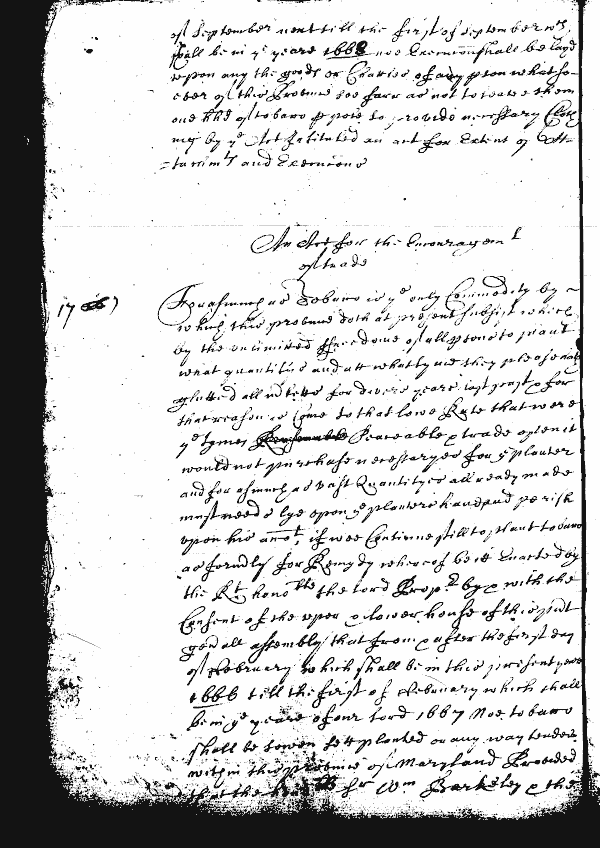 of September next till the first of September wch
shall be in ye yeare 1668 noe Execucon shall be layd
upon any the goods or Chattles of any pson whatso-
ever of this Province soe farr as not to leave them
one hhd of tobaco p pole to provide necessary Cloa
ing by ye Act Intituled an act for Extent of Att-
tachmts and Execucons
An Act for the Encouragemt
of trade
17
Forasmuch as Tobaco is ye only Commodity by
which this province doth at present subsist which
by the unlimited ffreedome of all psons to plant
what quantities and att what tyme they please hath
glutted all mketts for divers yeares last past & for
that reason is Come to that lowe Rate that were
ye tymes Peaceable & trade open it
would not purchase necessaryes for ye planter
and for asmuch as vast Quantityes allready made
must needs lye upon ye planters hand and perish
upon his accot, if wee Continue still to plant tobaco
as formerly for Remedy whereof be itt Enacted by
the Rt honoble the lord Propr by & with the
Consent of the upper & lower house of this psnt
genall assembly that from & after the first day
of February which shall be in this present yeare
1666 till the first of February which shall
be in ye yeare of our lord 1667 Noe tobacco
shall be sowen sett planted or any way tended
within this province of Maryland Provided
that the Sr Wm Barkeley & the